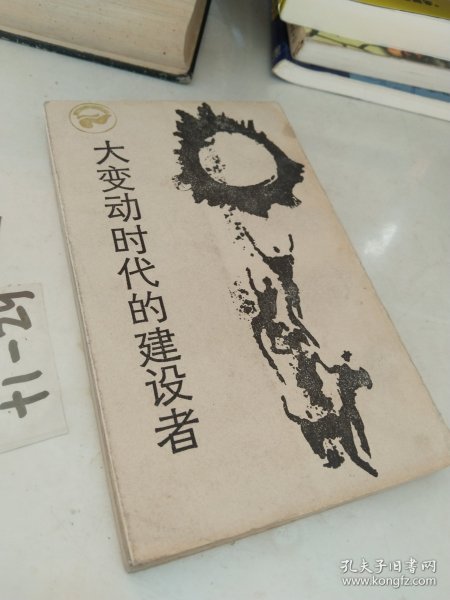 大变动时代的建设者
41-29
孔夫子旧书网
www.kongfz.com